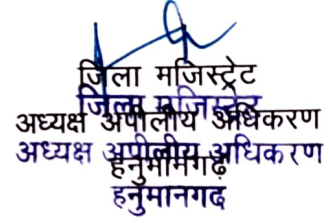 जिला मजिस्ट्रेट
जिला मजिस्ट्रेट
अध्यक्ष अपीलीय अधिकरण
अध्यक्ष अपीलीय अधिकरण
हनुमानगढ़
हनुमानगढ